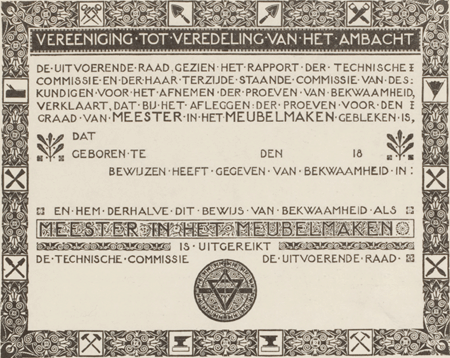 VEREENIGING·TOT·VEREDELING·VAN·HET·AMBACHT
DE·UITVOERENDE·RAAD, GEZIEN·HET·RAPPORT·DER·TECHNISCHE
COMMISSIE·EN·DER·HAAR·TERZIJDE·STAANDE·COMMISSIE·VAN·DES:
KUNDIGEN·VOOR·HET·AFNEMEN·DER·PROEVEN·VAN·BEKWAAMHEID,
VERKLAART, DAT·BIJ·HET·AFLEGGEN·DER·PROEVEN·VOOR·DEN
GRAAD·VAN·MEESTER·IN·HET·MEUBELMAKEN·GEBLEKEN·IS,
DAT
GEBOREN·TE DEN 18
BEWIJZEN·HEEFT·GEGEVEN·VAN·BEKWAAMHEID·IN:
EN·HEM·DERHALVE·DIT·BEWIJS·VAN·BEKWAAMHEID·ALS
MEESTER·IN·HET·MEUBELMAKEN
IS·UITGEREIKT
DE·TECHNISCHE·COMMISSIE DE·UITVOERENDE·RAAD·